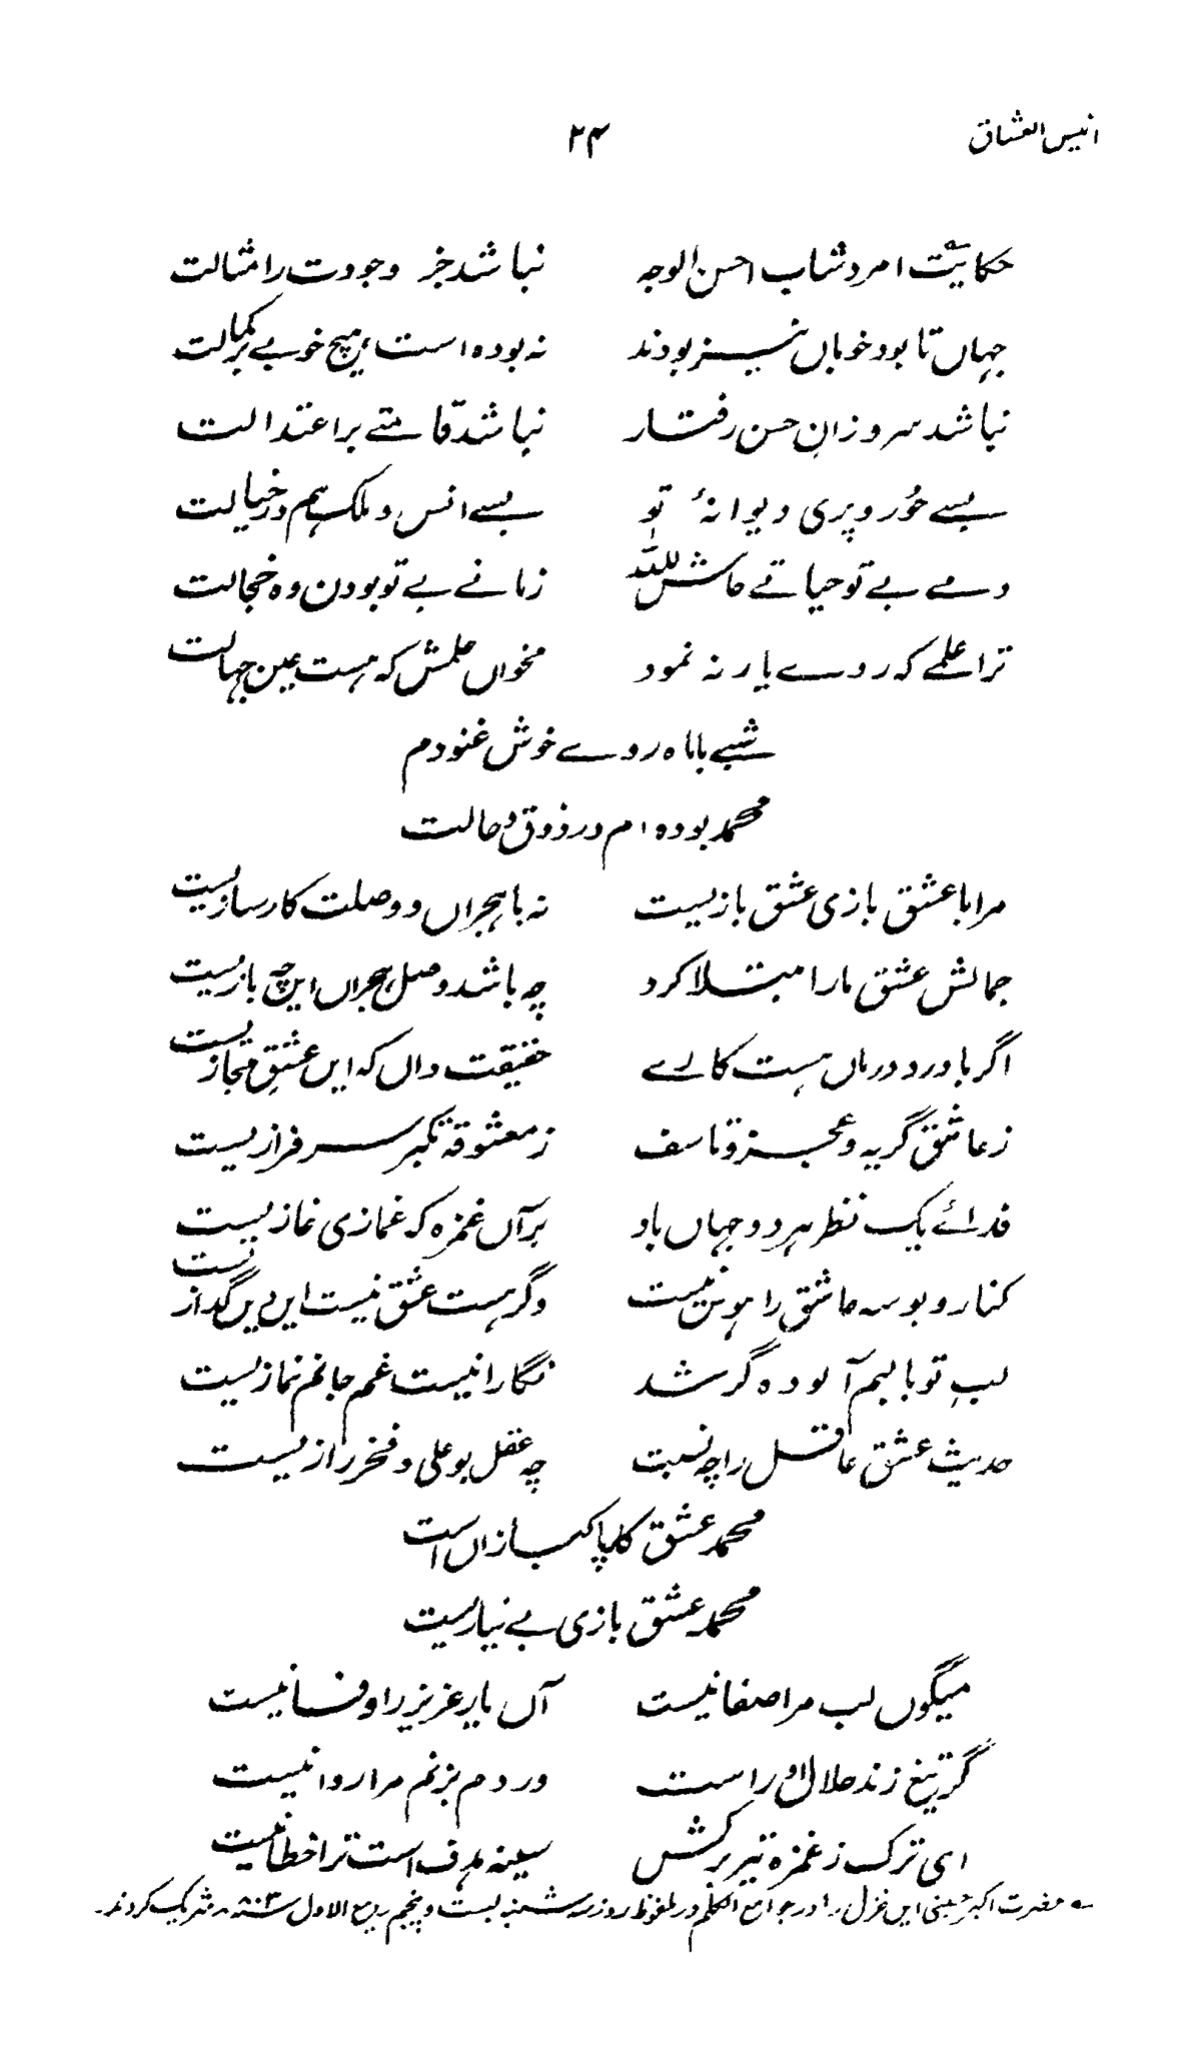 انیس العشاق ۲۴
حکایت امرد شاب احسن الوجہ نباشد جز وجودت را مثالت
جہاں تا بود خوباں نیز بودند نہ بودہ است ہیچ خوبے بر کمالت
نباشد سرو زاں حسن رفتار نباشد قامتے بر اعتدالت
بسے حُور و پری دیوانۂ تو بسے انس و ملک ہم در خیالت
دمے بے تو حیاتے حاش للہ زمانے بے تو بودن وہ خجالت
ترا علمے کہ روے یار نہ نمود مخواں علمش کہ ہست عین جہالت
شبے باماہ روے خوش غنودم
محمد بودہ ام در ذوق و حالت
مرا با عشق بازی عشق بازیست نہ با ہجراں و وصلت کارسازیست
جمالش عشق مارا مبتلا کرد چہ باشد وصل ہجراں ایں چہ بازیست
اگر با درد درماں ہست کالے حقیقت داں کہ ایں عشقِ مجازیست
ز عاشق گریہ و عجز و تاسف ز معشوقہ تکبر سرفرازیست
فدائے یک نظر ہر دو جہاں باد بر آں غمزہ کہ غمازی غمازیست
کنار و بوسہ عاشق را ہوس نیست وگر ہست عشق نیست ایں دیں گدازیست
لبِ تو با لبم آلودہ گر شد نگارا نیست غم جانم نمازیست
حدیث عشق عاقل را چہ نسبت چہ عقل بو علی و فخر رازیست
محمد عشق کار پاکبازاں است
محمد عشق بازی بے نیازیست
میگوں لب مرا صفا نیست آں یار عزیز را وفا نیست
گر تیغ زند حلال او راست ور دم بزنم مرا روا نیست
ای ترک ز غمزہ تیر برکش سینہ ہدف است ترا خطا نیست
ـہ حضرت اکبر حسینی ایں غزل را در جوامع الکلم در ملفوظ روز سہ شنبہ بست و پنجم ربیع الاول سنہ ۸۰۳ھ شریک کردند۔